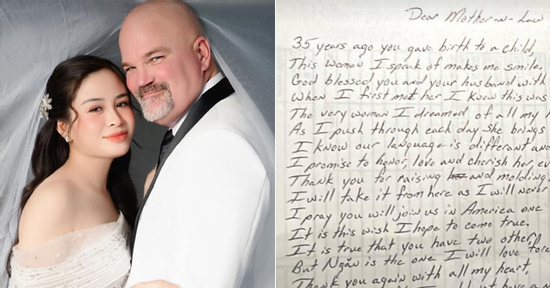 Dear Mother-n-Law
35 years ago you gave birth to a child,
This woman I speak of makes me smile.
God blessed you and your husband with
When I first met her I knew this was
The very woman I dreamed of all my l
As I push through each day she brings
I know our language is differant and
I promise to honor, love and cherish her, ev
Thank you for raising and molding
I will take it from here as I will never
I pray you will join us in America one
It is this wish I hope to come true.
It is true that you have two other
But Ngân is the one I will love fore
Thank you again with all my heart,